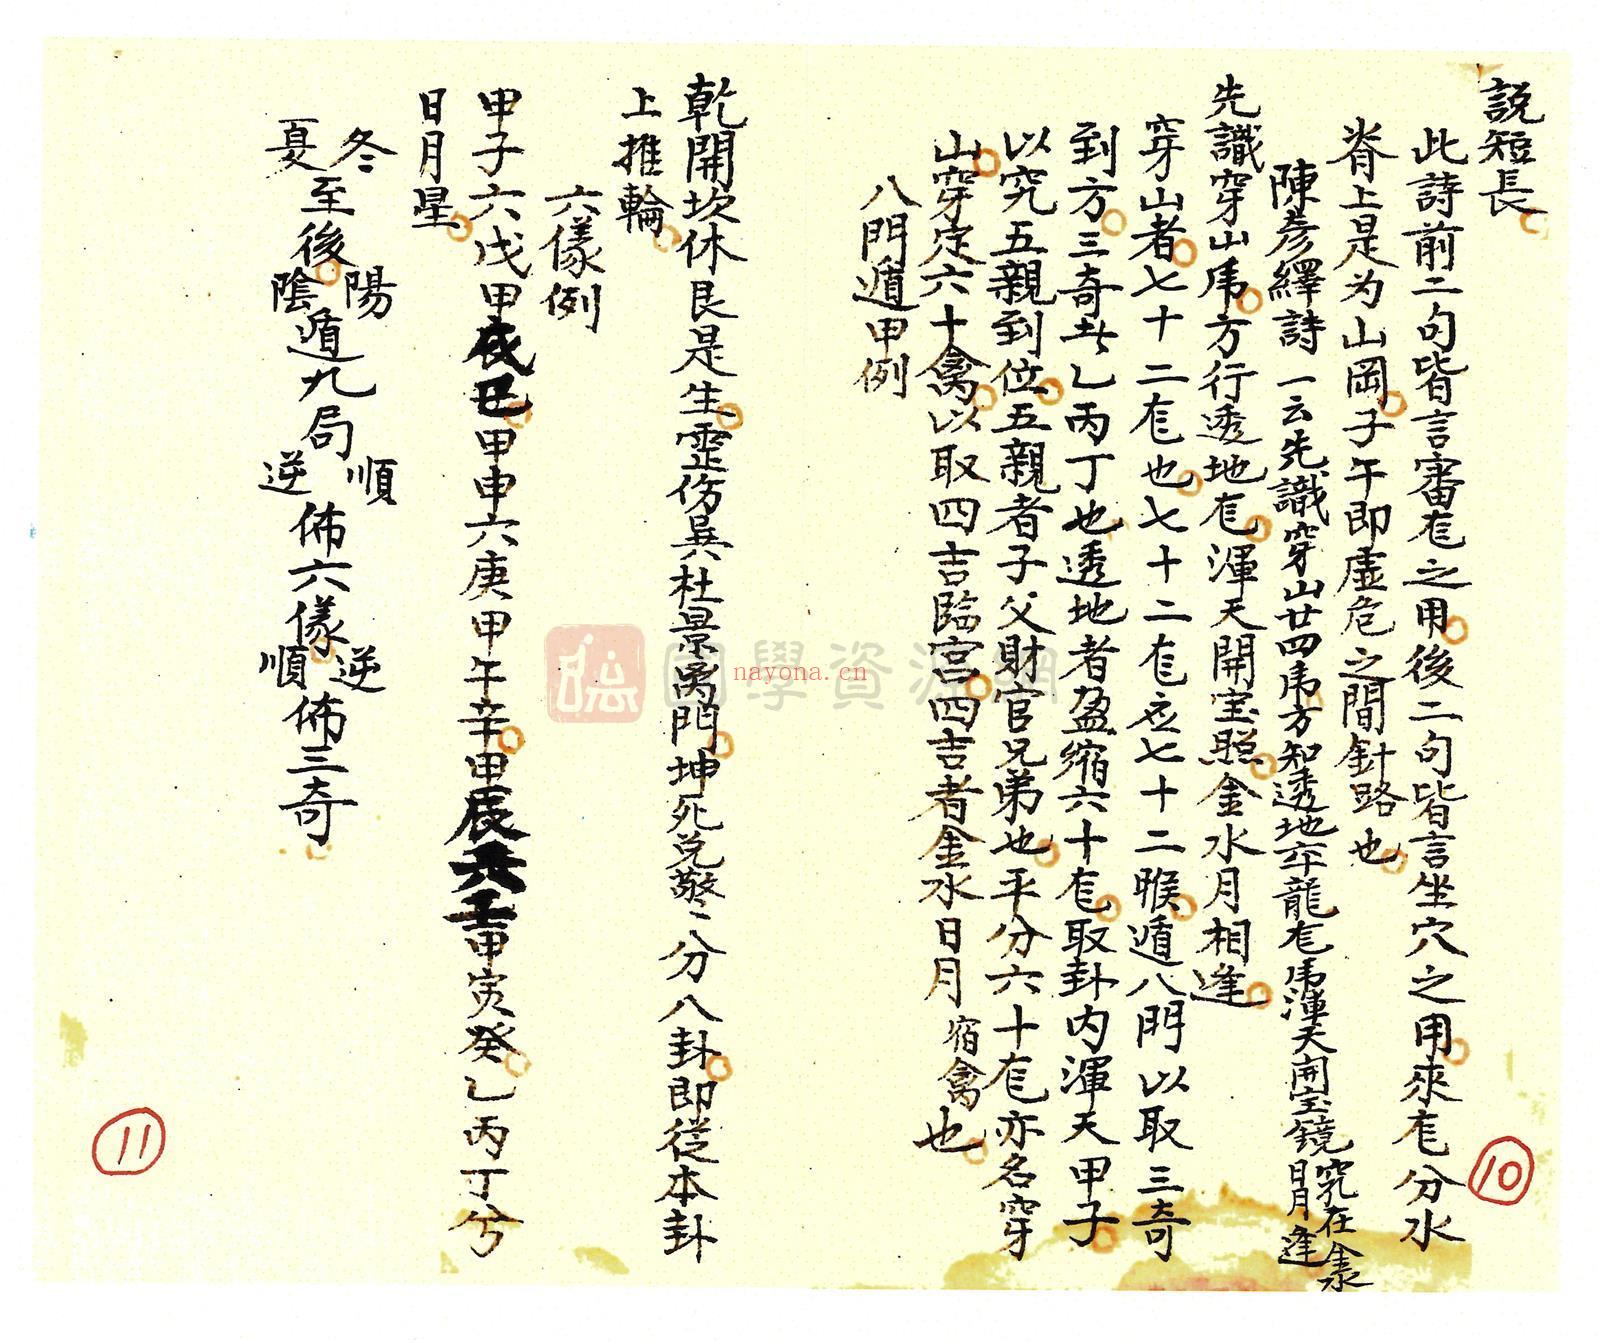 說短長
此詩前二句皆言審龙之用後二句皆言坐穴之用來龙分水
脊上是为山岡子午即虛危之間針路也
陳彦繹詩一云先識穿山廿四虎方知透地卒龍龙虎渾天開宝鏡
究在金水
日月逢
先識穿山虎方行透地龙渾天開宝照金水月相逢
穿山者七十二龙也七十二龙应七十二睺遁八門以取三奇
到方三奇此乙丙丁也透地者盈縮六十龙取卦内渾天甲子
以究五親到位五親者子父財官兄弟也平分六十龙亦名穿
山穿定六十禽以取四吉臨宫四吉者金水日月宿禽也
八門遁甲例
乾開坎休艮是生震伤巽杜景离門坤死兑驚〻分八卦即從本卦
上推輪
六儀例
甲子六戊甲戌己甲申六庚甲午辛甲辰壬甲寅癸乙丙丁兮
日月星
冬
夏
至後
陽
陰
遁九局
順
逆
佈六儀
逆
順
佈三奇
10
11
國學資源網
nayona.cn